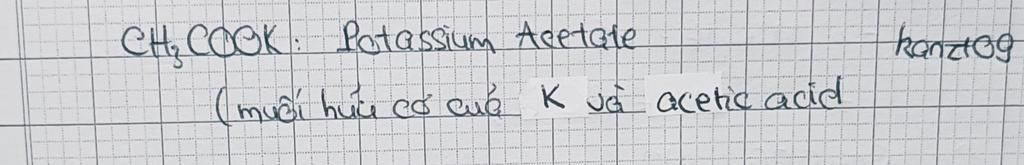 CH₃COOK: Potassium Acetate kanztog
(muối hữu cơ của K và acetic acid